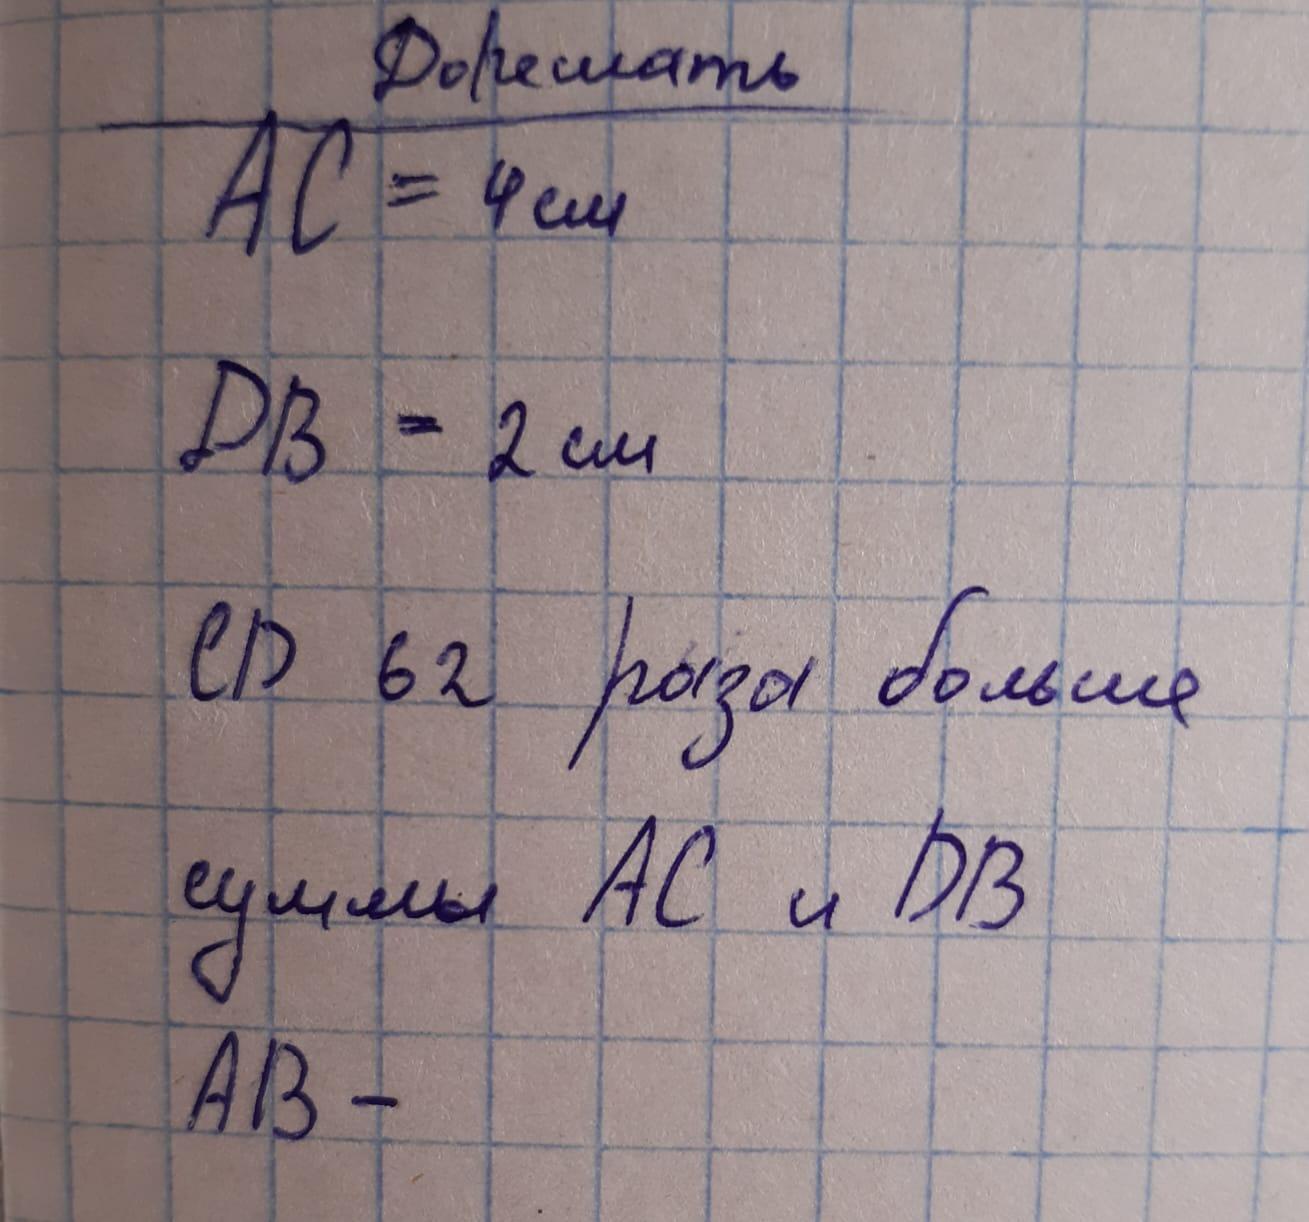 Дорешать
AC = 4 см
DB = 2 см
CD в 2 раза больше
суммы AC и DB
AB -